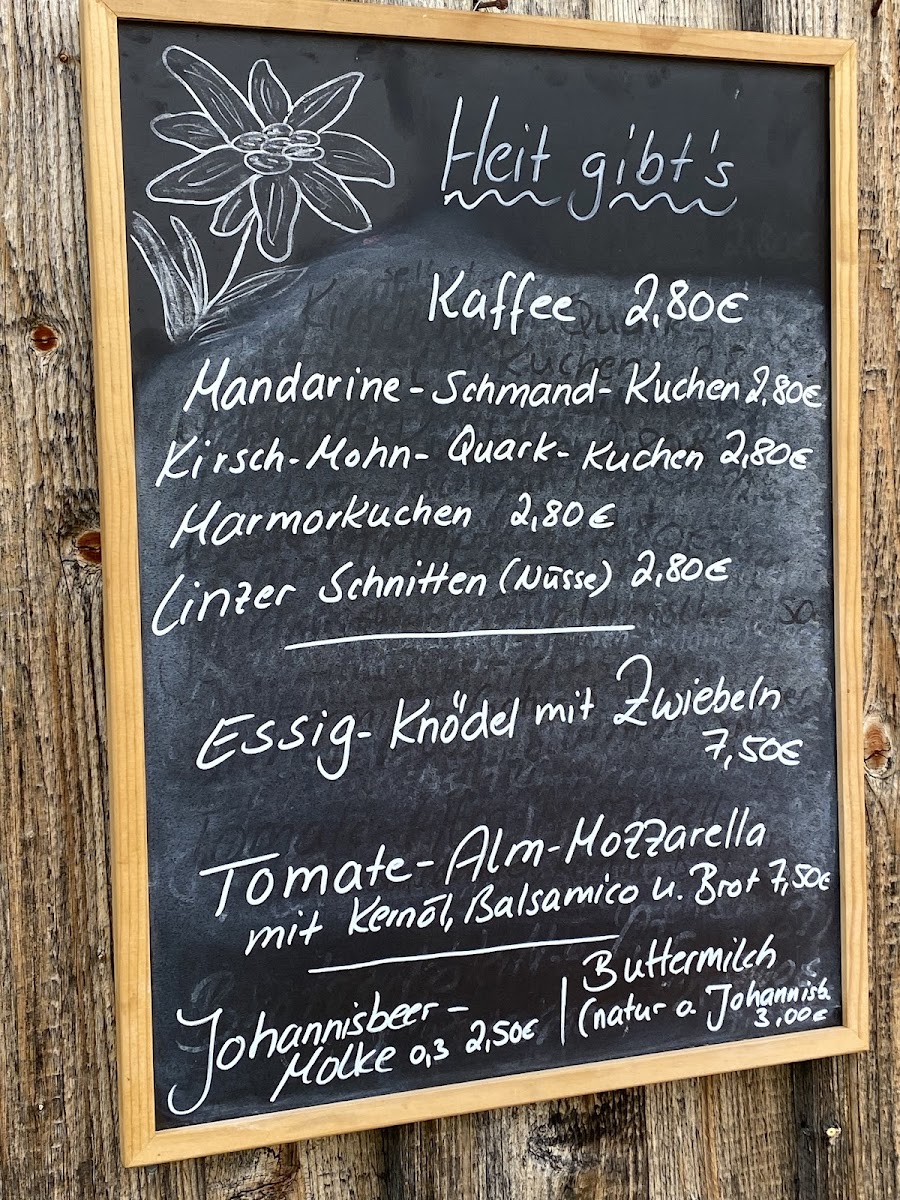 Heit gibt's
Kaffee 2,80€
Mandarine-Schmand-Kuchen 2,80€
Kirsch-Mohn-Quark-Kuchen 2,80€
Marmorkuchen 2,80€
Linzer Schnitten (Nüsse) 2,80€
Essig-Knödel mit Zwiebeln
7,50€
Tomate-Alm-Mozzarella
mit Kernöl, Balsamico u. Brot 7,50€
Johannisbeer-
Molke 0,3 2,50€
Buttermilch
(natur o. Johannisb.
3,00€